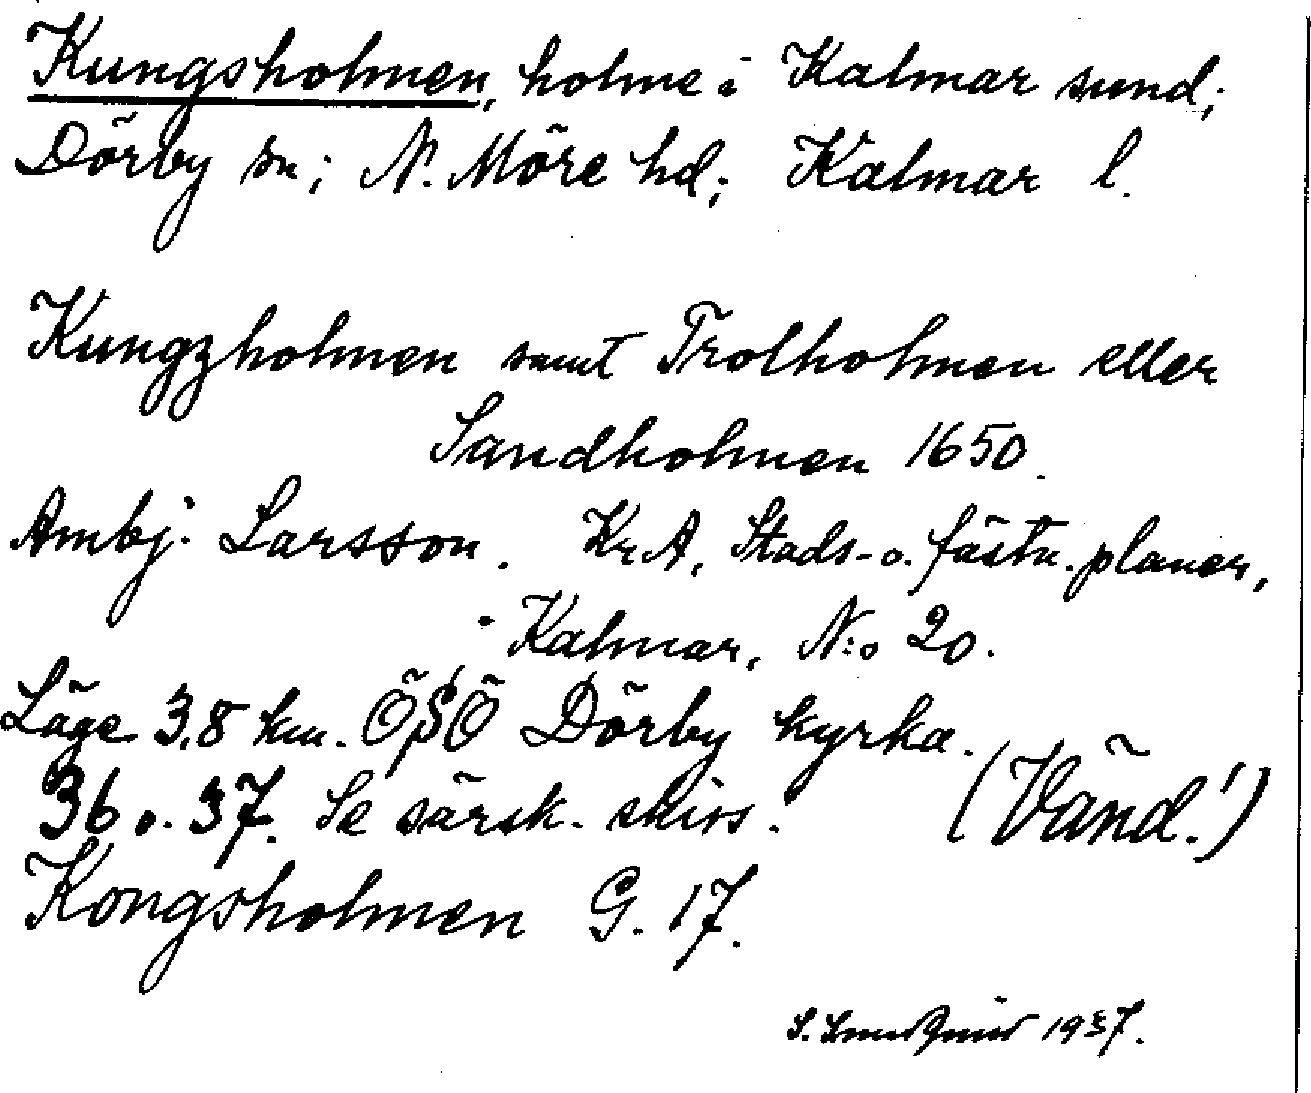 Kungsholmen, holme i Kalmar sund;
Dörby sn; N. Möre hd; Kalmar l.
Kungzholmen samt Trolholmen eller
Sandholmen 1650.
Ambj. Larsson. Kr A, Stads- o. fästn. planer,
Kalmar, N:o 20.
Läge 3,8 km. ÖSÖ Dörby kyrka.
36 o. 37. Se särsk. skiss. (Vänd!)
Kongsholmen G. 17.
S. 1937.